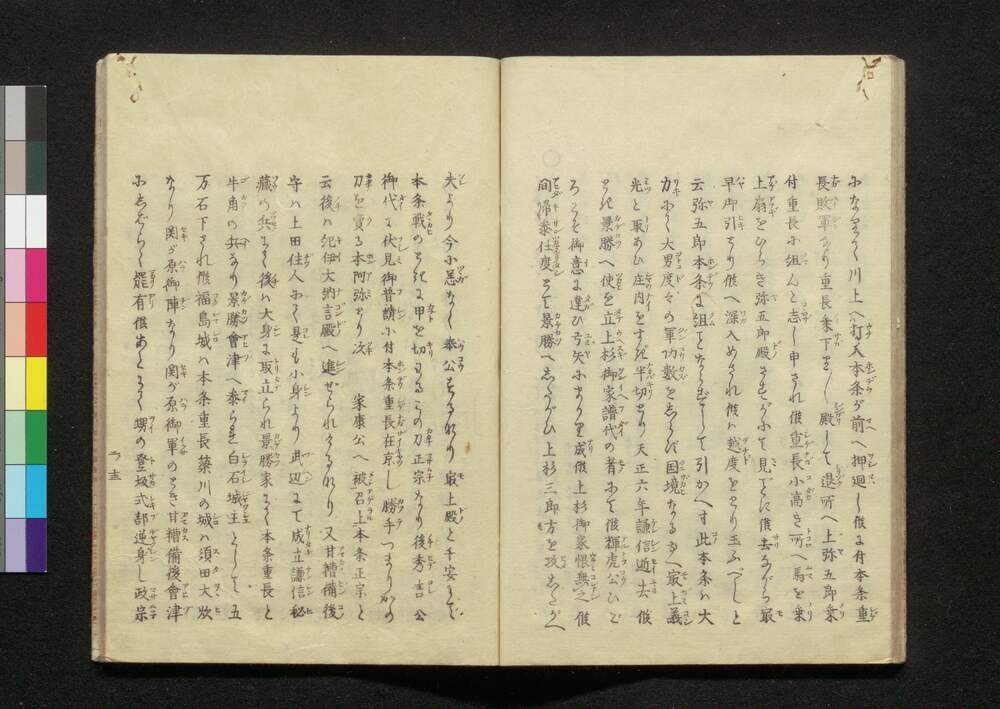 になりて川上へ打入本条が前へ押廻し候に付本条重
長敗軍なり重長乗下を殿して退所へ上弥五郎乗
付重長に組んと志し申され候重長小高き所へ馬を乗
上扇をひらき弥五郎殿さすがにて見てに候去ながら最
早御引とり候へ深入めされ候ハ越度をとり玉ふべしと
云弥五郎本条に組ことならずして引かへす此本条ハ大
力にて大男度々の軍功数をしらず国境なるゆへ最上義
光と取あひ庄内をすぎ半切とり天正六年謙信逝去候
とき景勝へ使を立上杉御家譜代の者にて候輝虎公ひご
ろこと御意に違ひ弓矢にまかり成候上杉御家恨無之候
間帰参仕度とて景勝へしたがひ上杉三郎方を攻したがへ
夫より今に恙なく奉公もされり最上殿と千安にて
本条戦のときに甲を切わるこの刀正宗なり後秀吉公
御代に伏見御普請に付本条重長在京し勝手つまりかの
刀を賣る本阿弥とり次 家康公へ被召上本条正宗と
云後ハ紀伊大納言殿へ進ぜられたるなり又甘糟備後
守ハ上田住人にて是も小身より武辺にて成立謙信秘
蔵の兵にて後ハ大身に取立られ景勝家にて本条重長と
牛角の兵なり景勝會津へ参らる白石城主として五
万石下され候福島城ハ本条重長簗川の城ハ須田大炊
なり関が原御陣なり関が原御軍のとき甘糟備後會津
にしばらく罷有候あとにて甥の登坂式部逆身し政宗
ヲ 十三